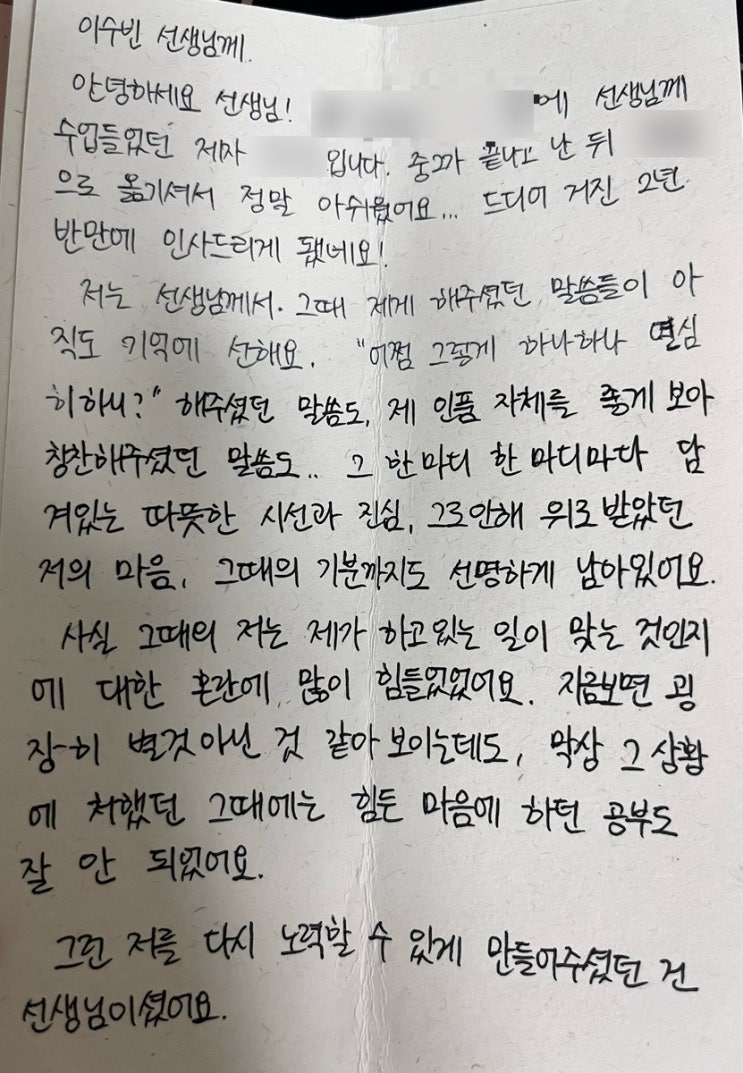 이수빈 선생님께.
안녕하세요 선생님! 에 선생님께
수업들었던 제자 입니다. 중2가 끝나고 난 뒤
으로 옮기셔서 정말 아쉬웠어요... 드디어 거진 2년
반만에 인사드리게 됐네요!
저는 선생님께서 그때 제게 해주셨던 말씀들이 아
직도 기억에 선해요. "어쩜 그렇게 하나하나 열심
히하니?" 해주셨던 말씀도, 제 인품 자체를 좋게 보아
칭찬해주셨던 말씀도.. 그 한마디 한마디마다 담
겨있는 따뜻한 시선과 진심, 그로인해 위로받았던
저의 마음, 그때의 기분까지도 선명하게 남아있어요.
사실 그때의 저는 제가 하고있는 일이 맞는 것인지
에 대한 혼란에 많이 힘들었었어요. 지금보면 굉
장히 별것 아닌 것 같아 보이는데도, 막상 그 상황
에 처했던 그때에는 힘든 마음에 하던 공부도
잘 안 되었어요.
그런 저를 다시 노력할 수 있게 만들어주셨던 건
선생님이셨어요.